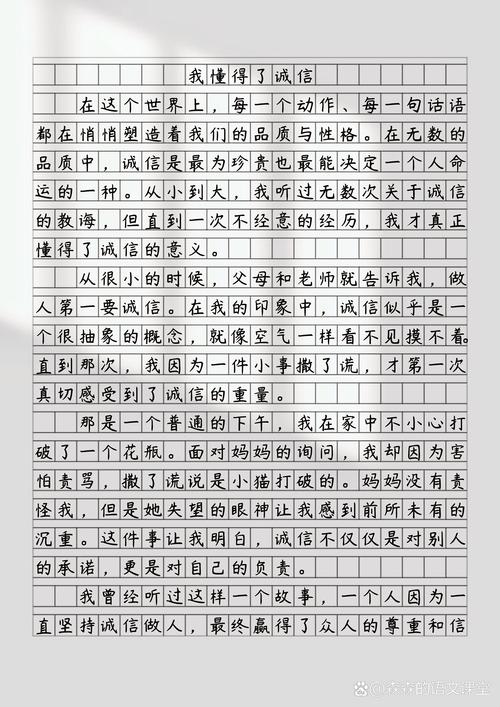 我懂得了诚信
在这个世界上，每一个动作、每一句话语
都在悄悄塑造着我们的品质与性格。在无数的
品质中，诚信是最为珍贵也最能决定一个人命
运的一种。从小到大，我听过无数次关于诚信
的教诲，但直到一次不经意的经历，我才真正
懂得了诚信的意义。
从很小的时候，父母和老师就告诉我，做
人第一要诚信。在我的印象中，诚信似乎是一
个很抽象的概念，就像空气一样看不见摸不着。
直到那次，我因为一件小事撒了谎，才第一次
真切感受到了诚信的重量。
那是一个普通的下午，我在家中不小心打
破了一个花瓶。面对妈妈的询问，我却因为害
怕责骂，撒了谎说是小猫打破的。妈妈没有责
怪我，但是她失望的眼神让我感到前所未有的
沉重。这件事让我明白，诚信不仅仅是对别人
的承诺，更是对自己的负责。
我曾经听过这样一个故事，一个人因为一
直坚持诚信做人，最终赢得了众人的尊重和信
森森的语文课堂